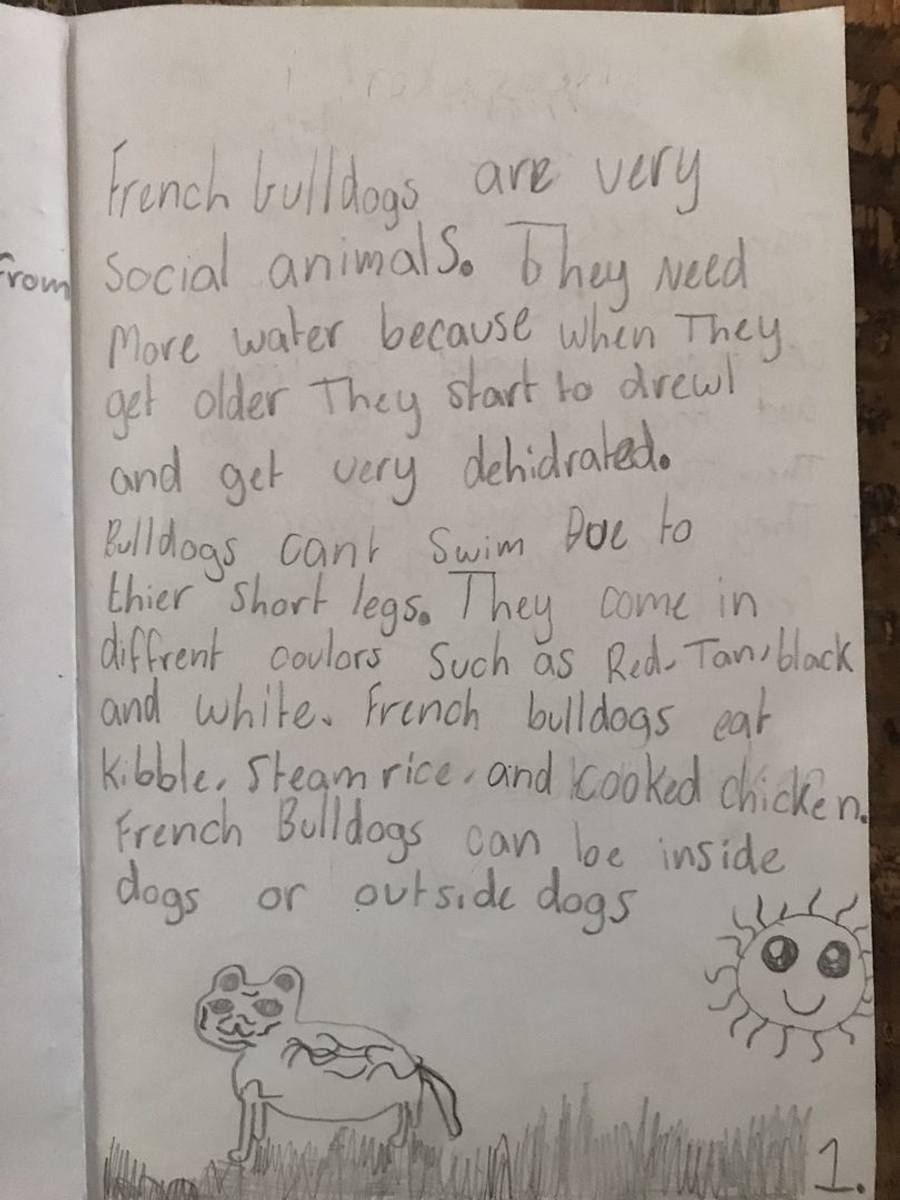 from
French bulldogs are very
social animals. They Need
More water because when They
get older They start to drewl
and get very dehidrated.
Bulldogs cant Swim Doe to
thier short legs. They come in
diffrent coulors Such as Red, Tan, black
and white. French bulldogs eat
kibble, Steam rice, and cooked chicken.
French Bulldogs can be inside
dogs or outside dogs
1.